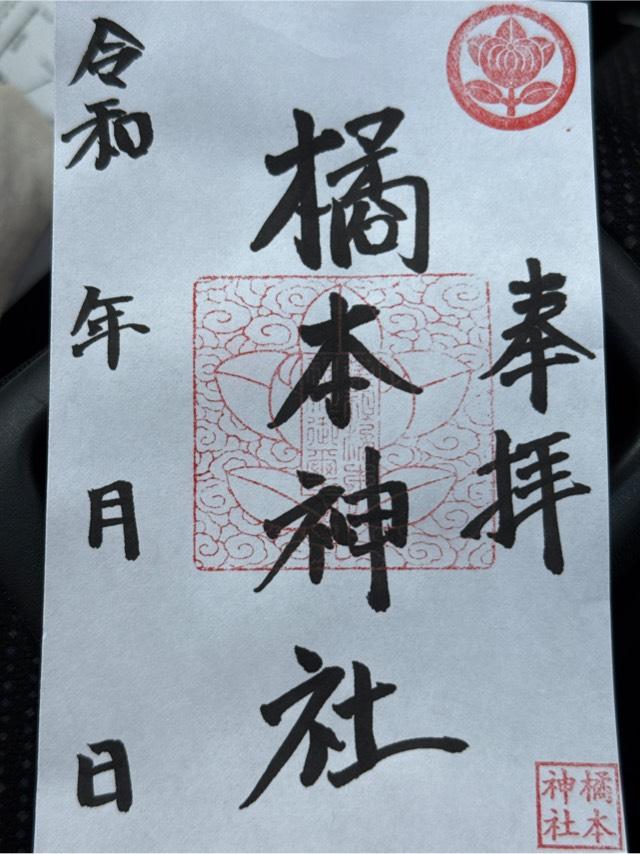 奉拝
橘本神社
令和 年 月 日
橘本
神社